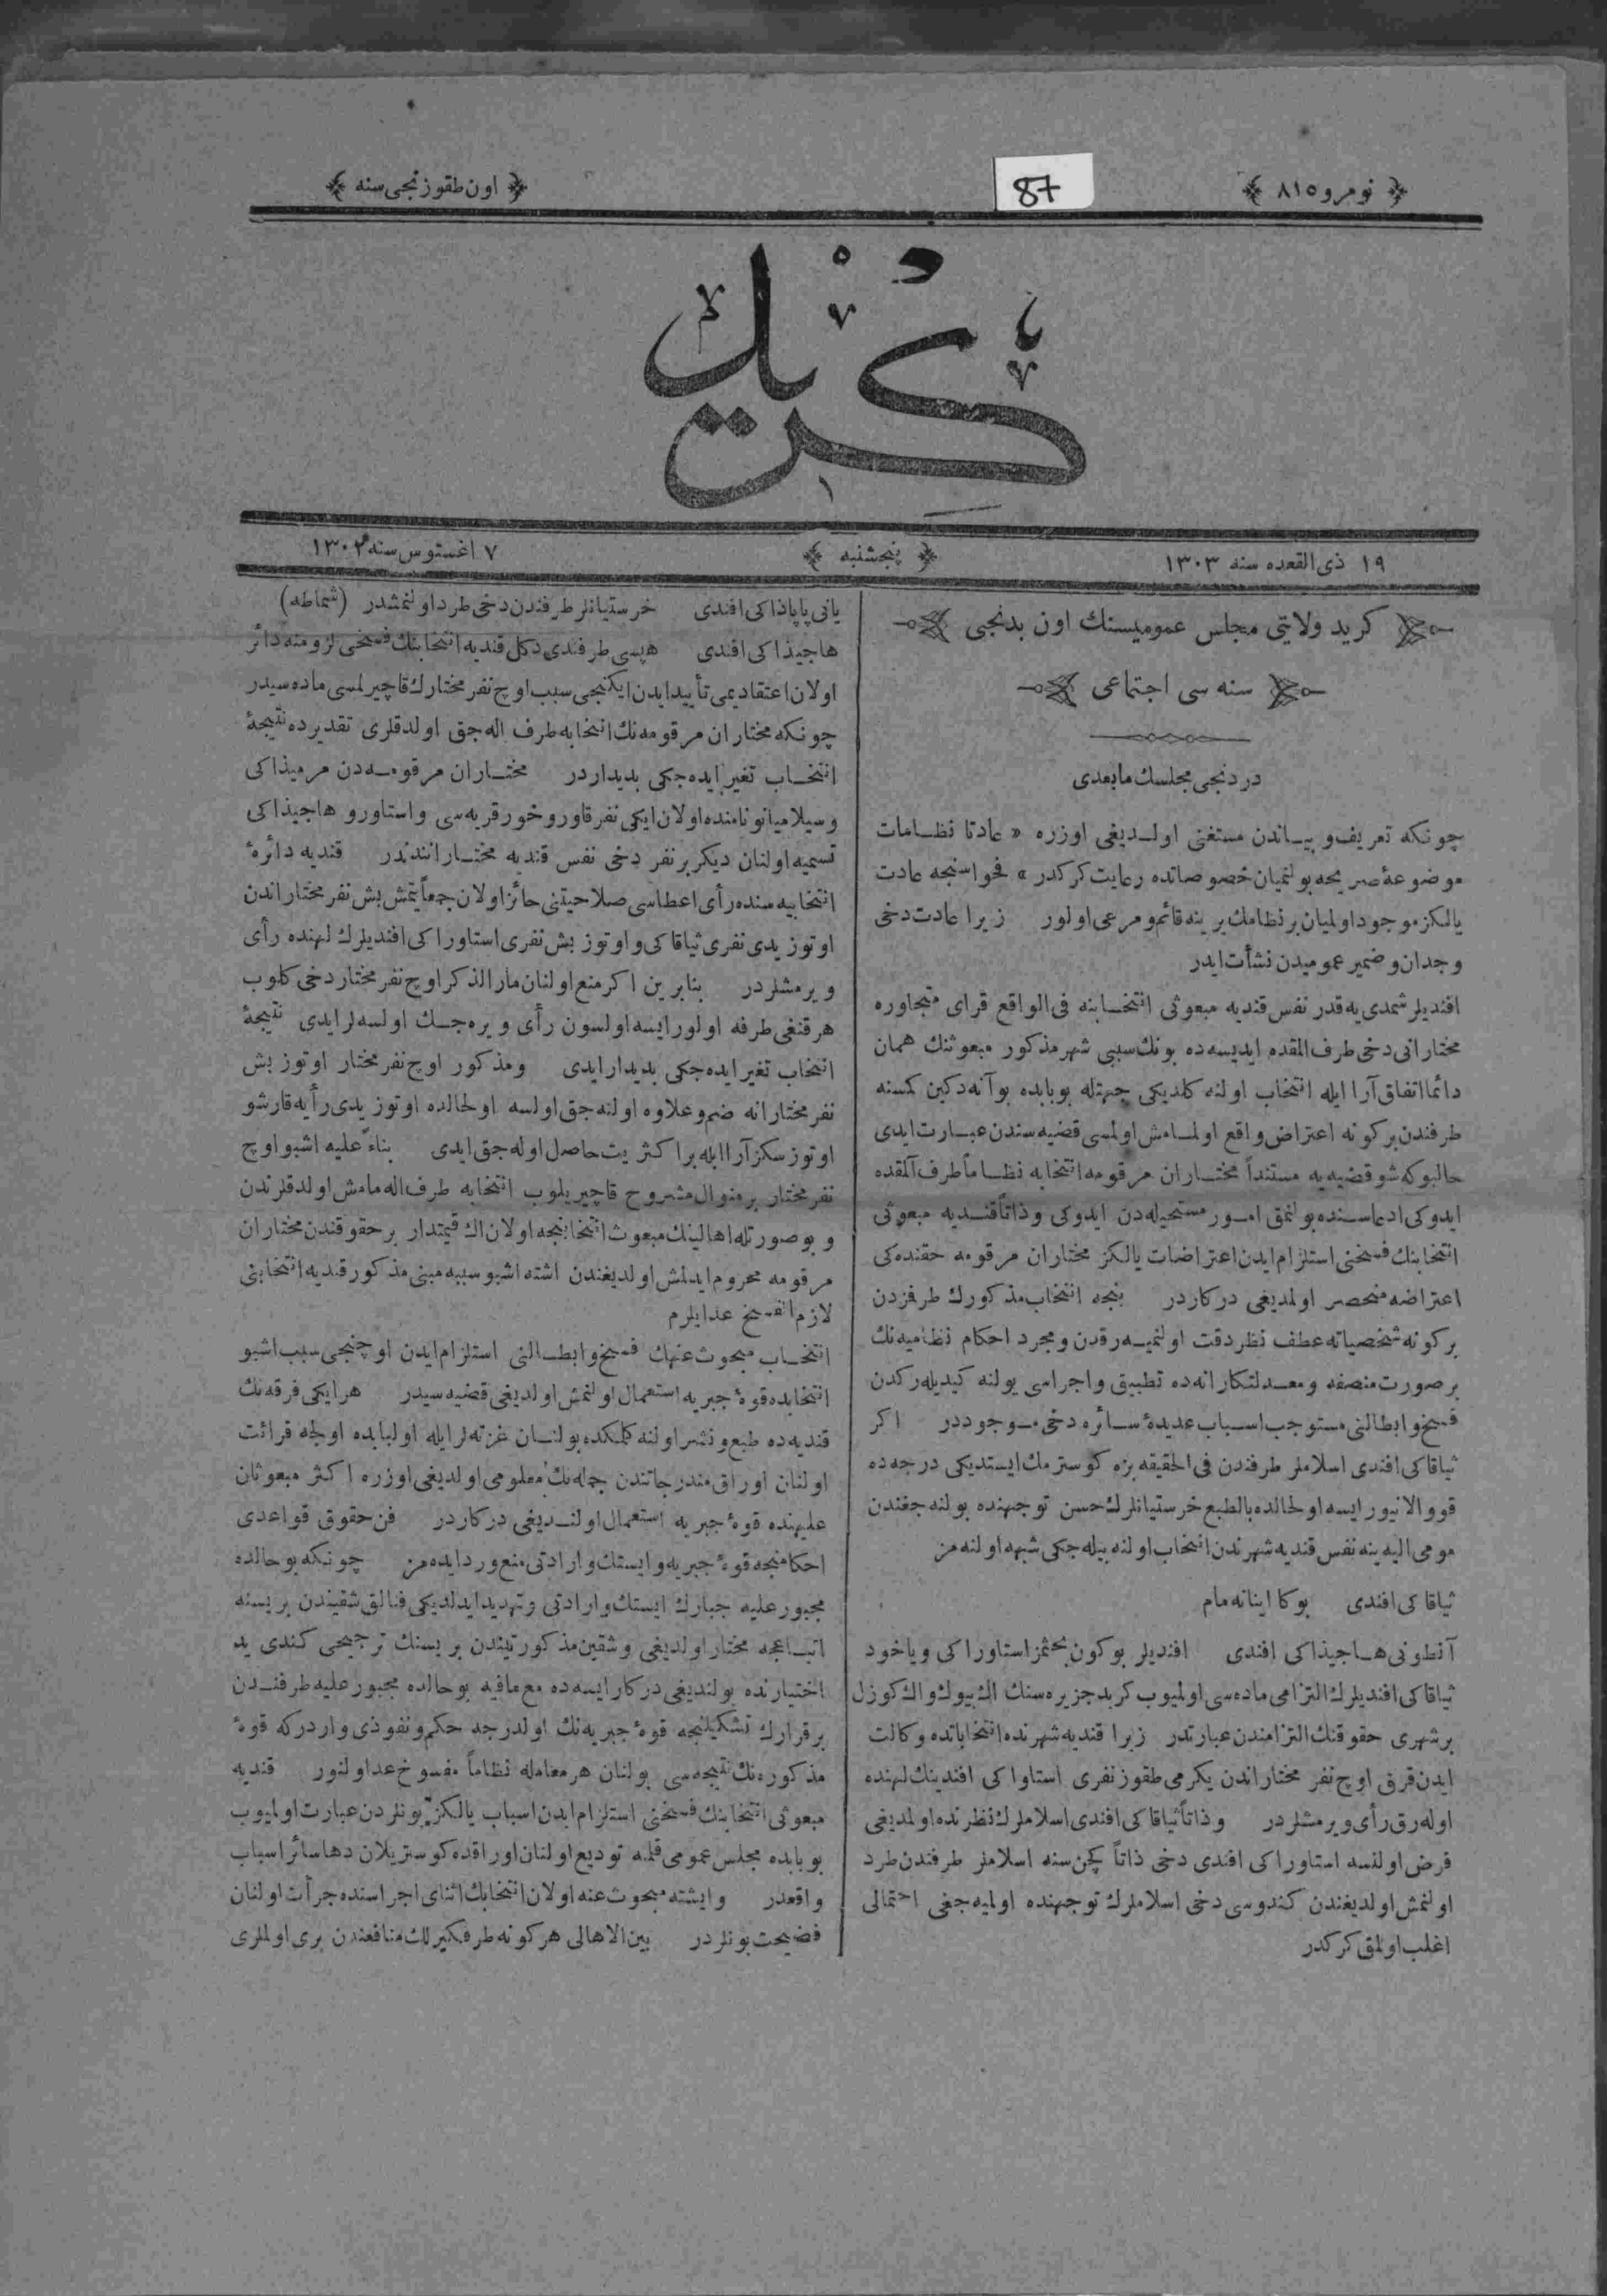 نومرو ٨١٥
87
اون طقوزنجی سنه
كريد
١٩ ذی القعده سنه ١٣٠٣
پنجشنبه
٧ اغستوس سنه ١٣٠٢
كريد ولايتی مجلس عموميسنك اون يدنجی
سنه سی اجتماعی
دردنجی مجلسك مابعدی
چونكه تعريف و بيـاندن مستغنی اولـديغی اوزره « عادتا نظـامات
موضوعهٔ صريحه بولنميان خصوصاتده رعايت كركدر » فحواسنجه عادت
يالكز موجود اولميان بر نظامك يرينه قائم و مرعی اولور زيرا عادت دخی
وجدان و ضمير عموميدن نشأت ايدر
افنديلر شمدی يه قدر نفس قنديه مبعوثی انتخـابنه فی الواقع قرای متجاوره
مختارانی دخی طرف القدم ايديسه ده بونك سببی شهر مذكور مبعوثنك همان
دائما اتفاق آرا ايله انتخاب اولنه كلديكی جهتله بوبابده بو آنه دكين كمسنه
طرفندن بركونه اعتراض واقع اولمـامش اولمسی قضيه سندن عبـارت ايدی
حالبوكه شو قضيه يه مستنداً مختـاران مرقومه انتخابه نظـاماً طرف القده
ايدوكی ادعاسـنده بولنمق امـور مستحيله دن ايدوكی وذاتاً قنـديه مبعوثی
انتخابنك فسخنی استلزام ايدن اعتراضات يالكز مختاران مرقومه حقنده كی
اعتراضه منحصر اولمديغی دركاردر بنجه انتخاب مذكورك طرفزدن
بركونه شخصياته عطف نظر دقت اولنميـه رق دن ومجرد احكام نظاميه نك
بر صورت منصفه و معـدلتكارانه ده تطبيق واجراسی يولنه كيديله ركدن
فسخ وابطالنی مستوجب اسـباب عديدهٔ سـائره دخی مـوجوددر اكر
ثياقاكی افندی اسلاملر طرفندن فی الحقيقه بزه كوسترمك ايستديكی درجه ده
قوو الانيور ايسه اولحالده بالطبع خرستيانلرك حسن توجهنده بولنه جغندن
مومی اليه ينه نفس قنديه شهرندن انتخاب اولنه بيله جكی شبهه اولنه مز
ثياقاكی افندی بوكا اينانه مام
آنطونی هـاجيذاكی افندی افنديلر بوكون بحثمز استاوراكی وياخود
ثياقاكی افنديلرك التزامی ماده سی اولميوب كريد جزيره سنك اك بيوك واك كوزل
بر شهری حقوقنك التزامندن عبارتدر زيرا قنديه شهرنده انتخاباتده وكالت
ايدن قرق اوچ نفر مختاراندن يكرمی طقوز نفری استاوا كی افندينك لهنده
اوله رق رأی ويرمشلردر وذاتاً ثياقاكی افندی اسلاملرك نظرنده اولمديغی
فرض اولنسه استاوراكی افندی دخی ذاتاً كچن سنه اسلاملر طرفندن طرد
اولنمش اولديغندن كندوسی دخی اسلاملرك توجهنده اولميه جغی احتمالی
اغلب اولمق كركدر
يانی پاپاذاكی افندی خرستيانلر طرفندن دخی طرد اولنمشدر (شماطه)
هاجيذاكی افندی هپسی طرفندن دكل قنديه انتخابنك فسخی لزومنه دائر
اولان اعتقاديمی تأييد ايدن ايكنجی سبب اوچ نفر مختارك قاچيرلمسی ماده سيدر
چونكه مختاران مرقومه نك انتخابه طرف اله جق اولدقلری تقديرده نتيجهٔ
انتخـاب تغير ايده جكی بديداردر مختـاران مرقومـه دن مرميذاكی
وسيلاميانو نامنده اولان ايكی نفر قاوروخور قريه سی واستاورو هاجيذاكی
تسميه اولنان ديكر بر نفر دخی نفس قنديه مختـارانندندر قنديه دائرهٔ
انتخابيه سنده رأی اعطاسی صلاحيتنی حائز اولان جمعاً يتمش بش نفر مختاراندن
اوتوز يدی نفری ثياقاكی واوتوز بش نفری استاوراكی افنديلرك لهنده رأی
ويرمشلردر بنابرين اكر منع اولنان مار الذكر اوچ نفر مختار دخی كلوب
هر قنغی طرفه اولور ايسه اولسون رأی ويره جـك اولسه لر ايدی نتيجهٔ
انتخاب تغير ايده جكی بديدار ايدی ومذكور اوچ نفر مختار اوتوز بش
نفر مختارانه ضم وعلاوه اولنه جق اولسه اولحالده اوتوز يدی رأيه قارشو
اوتوز سكز آرا ايله بر اكثريت حاصل اوله جق ايدی بناءً عليه اشبو اوچ
نفر مختار بر منوال مشروح قاچيريلوب انتخابه طرف اله مامش اولدقلرندن
و بو صورتله اهالينك مبعوث انتخابنجه اولان اك قيمتدار بر حقوقندن مختاران
مرقومه محروم ايدلمش اولديغندن اشته اشبو سببه مبنی مذكور قنديه انتخابنی
لازم الفسخ عد ايلرم
انتخـاب مبحوث عنهك فسخ وابطـالنی استلزام ايدن اوچنجی سبب اشبو
انتخابده قوهٔ جبريه استعمال اولنمش اولديغی قضيه سيدر هر ايكی فرقه نك
قنديه ده طبع و نشر اولنه كلمكده بولنـان غزته لر ايله اولبابده اولجه قرائت
اولنان اوراق مندرجاتندن جمله نك معلومی اولديغی اوزره اكثر مبعوثان
عليهنده قوهٔ جبريه استعمال اولنـديغی دركاردر فن حقوق قواعدی
احكامنجه قوهٔ جبريه وايستك وارادتی منع ورد ايده مز چونكه بوحالده
مجبور عليه جبارك ايستك وارادتی وتهديد ايدلديكی فنالق شقيندن بريسنه
اتبـاعجه مختار اولديغی وشقين مذكورتيندن بريسنك ترجيحی كندی يد
اختيارنده بولنديغی دركار ايسه ده مع مافيه بوحالده مجبور عليه طرفنـدن
بر قرارك تشكيلنجه قوهٔ جبريه نك اولدرجه حكم ونفوذی واردركه قوهٔ
مذكوره نك نتيجه سی بولنان هر معامله نظاماً مفسوخ عد اولنور قنديه
مبعوثی انتخابنك فسخنی استلزام ايدن اسباب يالكز بونلردن عبارت اولميوب
بوبابده مجلس عمومی قلمنه توديع اولنان اوراقده كوستريلان دها سائر اسباب
واقعدر وايشته مبحوث عنه اولان انتخابك اثنای اجراسنده جرأت اولنان
فضيحت بونلردر بين الاهالی هركونه طرفكيرلك منافعندن بری اولملری